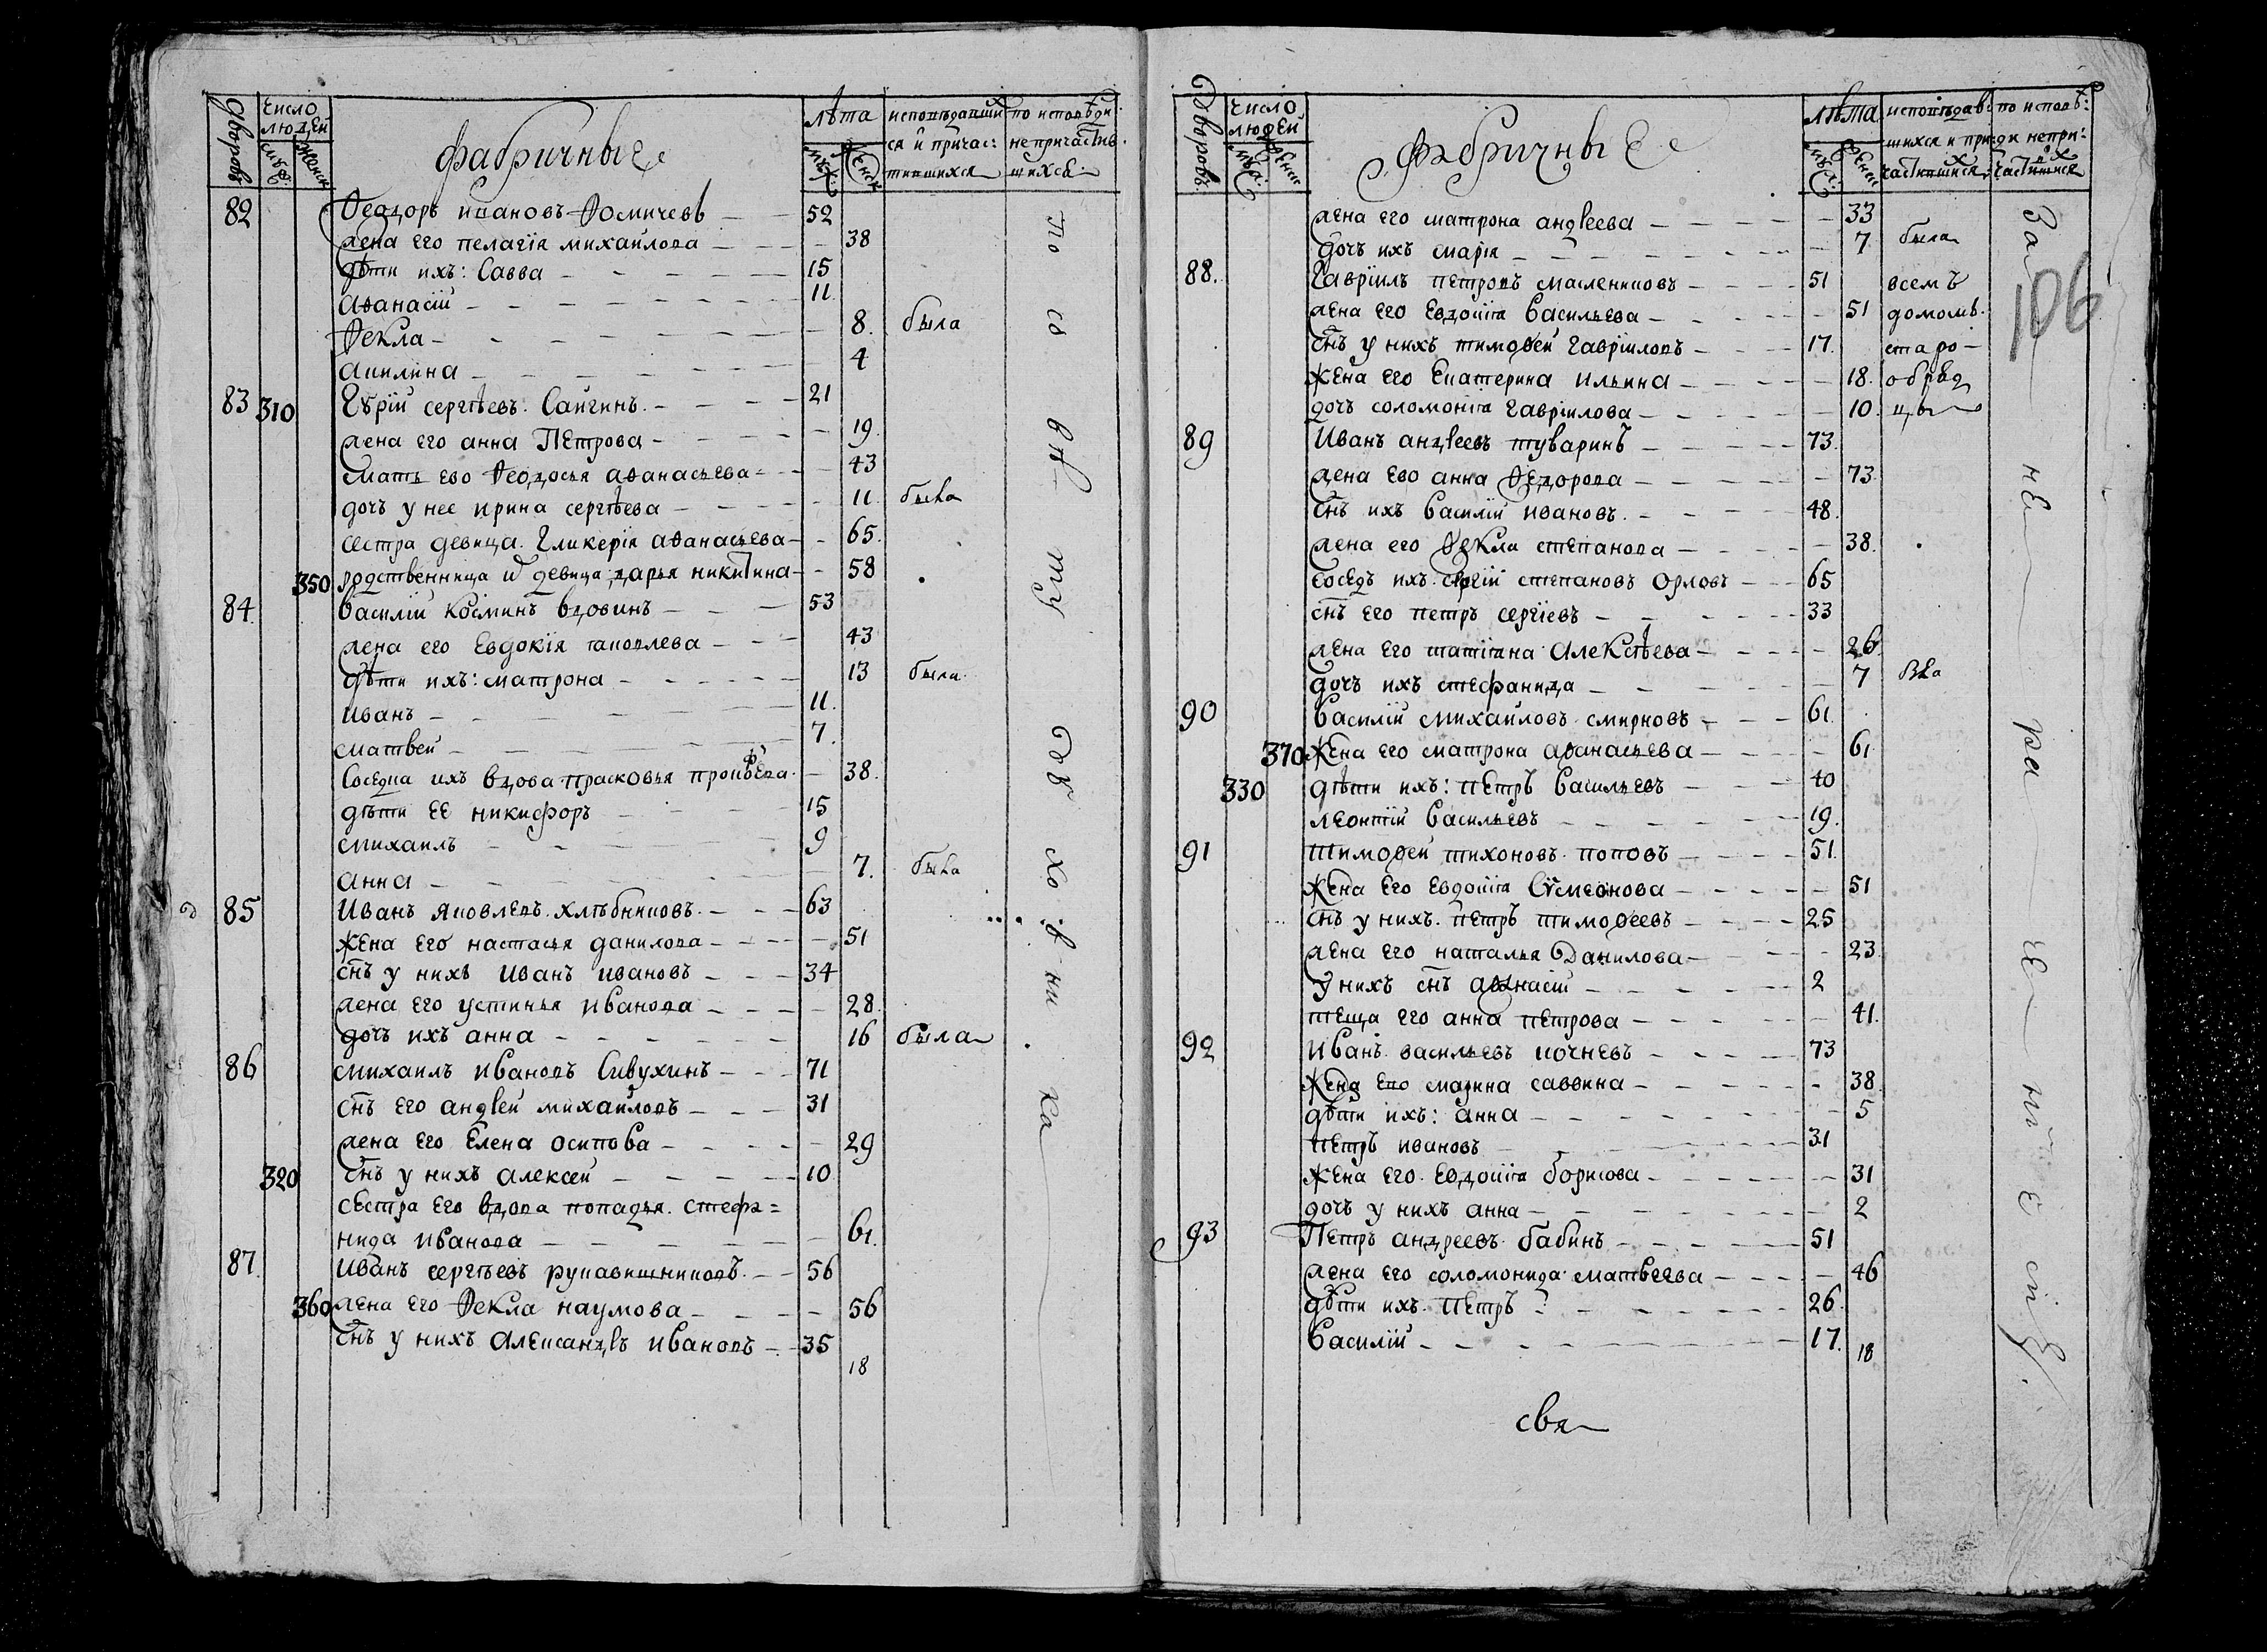 Дворовъ
Число людей
мѣж:
женск
фабричные
лѣта
мѣж:
женск
исповѣдавших
ся и причас:
тившихся
по исповѣди
непричастив:
шихся
82 Ѳеодоръ ивановъ Ѳомичевъ 52
жена его пелагія михаилова 38
дѣти ихъ: Савва 15
аѳанасіи 11
Ѳекла 8. была
акилина 4
83 310 Гурїи сергѣевъ. Саигинъ. 21
жена его анна Петрова 19.
мать ево Ѳеодосья аѳанасьева 43
дочь у нее ирина сергѣева 11. была
сестра девица. Гликерія аѳанасьева 65.
350 родственница и девица дарья никитина 58
84. василїи косминъ вдовинъ 53
жена его Евдокїя іаковлева 43
дѣти ихъ: матрона 13 была
иванъ 11.
матвеи 7.
соседка ихъ вдова прасковья прокофева 38.
дѣти ее никифоръ 15
михаилъ 9
анна 7. была
85 иванъ яковлевъ. хлѣбниковъ. 63
жена его настасья данилова 51
снъ у нихъ иванъ ивановъ 34
жена его устинья иванова 28.
дочь ихъ анна 16 была
86 михаилъ ивановъ Сивухинъ 71
снъ его андреи михаиловъ 31
жена его Елена осипова 29
320 снъ у нихъ алексеи 10
сестра его вдова попадья. стефа=
нида иванова 61.
87. иванъ сергѣевъ рукавишниковъ. 56
360 жена его Ѳекла наумова 56
снъ у нихъ александръ ивановъ 35
18
Дворовъ
число людей
мѣж:
женск
фабричные
лѣта
мѣж:
женск
исповѣдав:
шихся и при
частившихся
по исповѣ:
ди непри:
частившихся
106
жена его матрона андреева 33
дочь ихъ марія 7 была
88. Гаврїилъ петровъ маслениковъ 51 всемъ
жена его Евдокїя васильева 51 домомъ.
снъ у нихъ тимоѳеи гаврїиловъ 17. старо-
жена его Екатерина ильина 18. обряд
дочь соломонїя гаврїилова 10. цы
89 Иванъ андреевъ туваринъ 73.
жена ево анна Ѳедорова 73.
снъ ихъ василїи ивановъ. 48.
жена его Ѳекла степанова 38.
соседъ ихъ. сергіи степановъ орловъ 65
снъ его петръ сергїевъ 33
жена его татїана алексѣева 26.
дочь ихъ стефанида 7 бла
90 василїи михаиловъ смирновъ 61.
370 жена его матрона аѳанасьева 61
330 дѣти ихъ: петръ васильевъ 40
леонтїи васильевъ 19.
91 тимоѳеи тихоновъ поповъ 51.
жена его евдокїя сѵмеонова 51
снъ у нихъ. петръ тимоѳеевъ 25
жена его наталья Данилова 23.
у нихъ снъ аѳанасіи 2
теща его анна петрова 41.
92 иванъ. васильевъ кочневъ 73
жена его марина саввина 38.
дѣти ихъ: анна 5
петръ ивановъ 31
жена его. евдокїя борисова 31
дочь у нихъ анна 2
93 Петръ андреевъ бабинъ 51
жена его соломонида матвеева 46
дѣти ихъ. петръ 26.
василїи 17.
18
свя